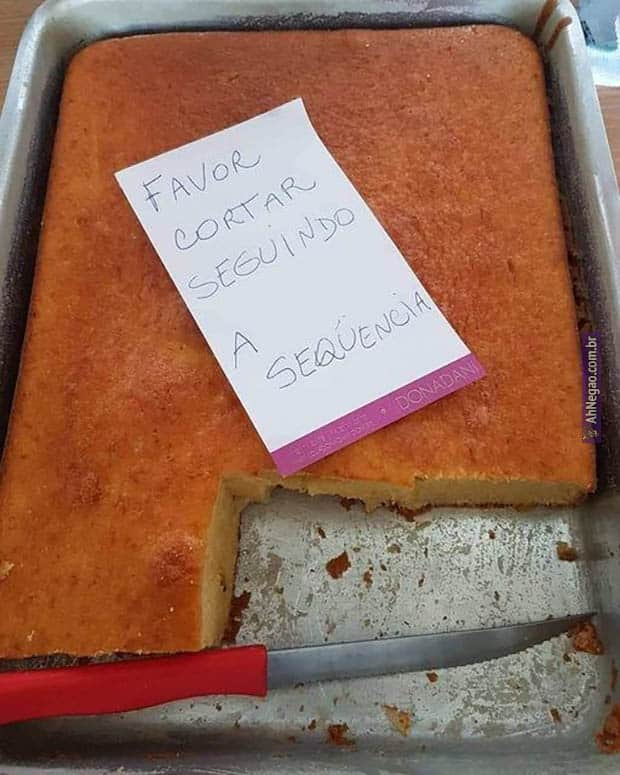 FAVOR
CORTAR
SEGUINDO
A SEQÜENCIA
DONADANI
AhNegao.com.br